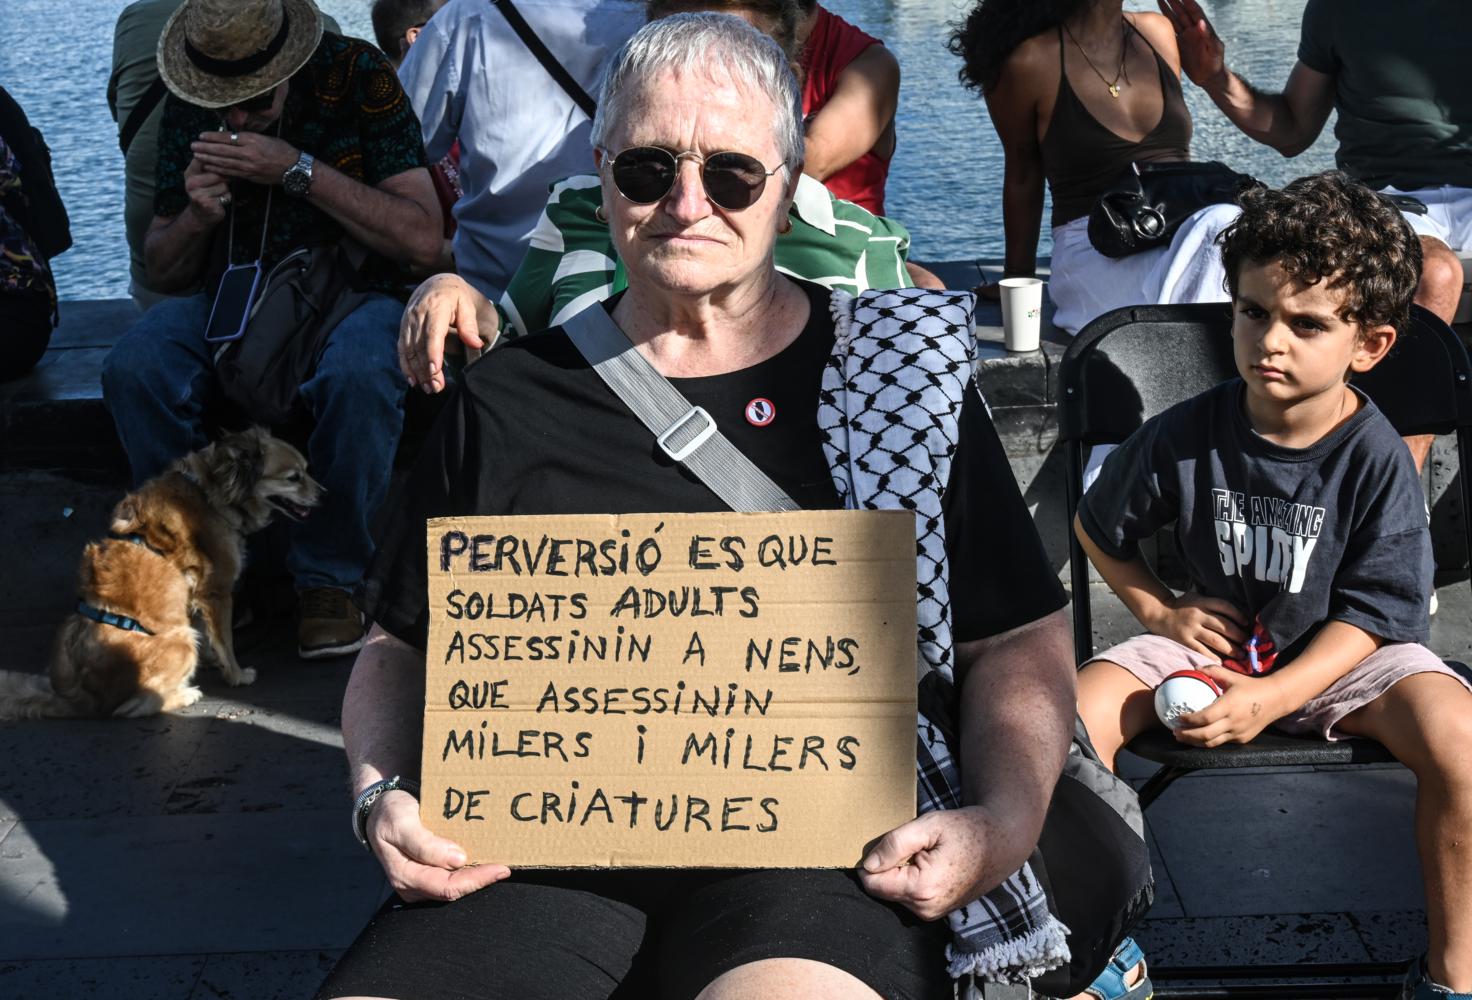 PERVERSIÓ ES QUE
SOLDATS ADULTS
ASSESSiNiN A NENS,
QUE ASSESSiNiN
MiLERS i MiLERS
DE CRiATURES
THE AMAZING
SPIDEY